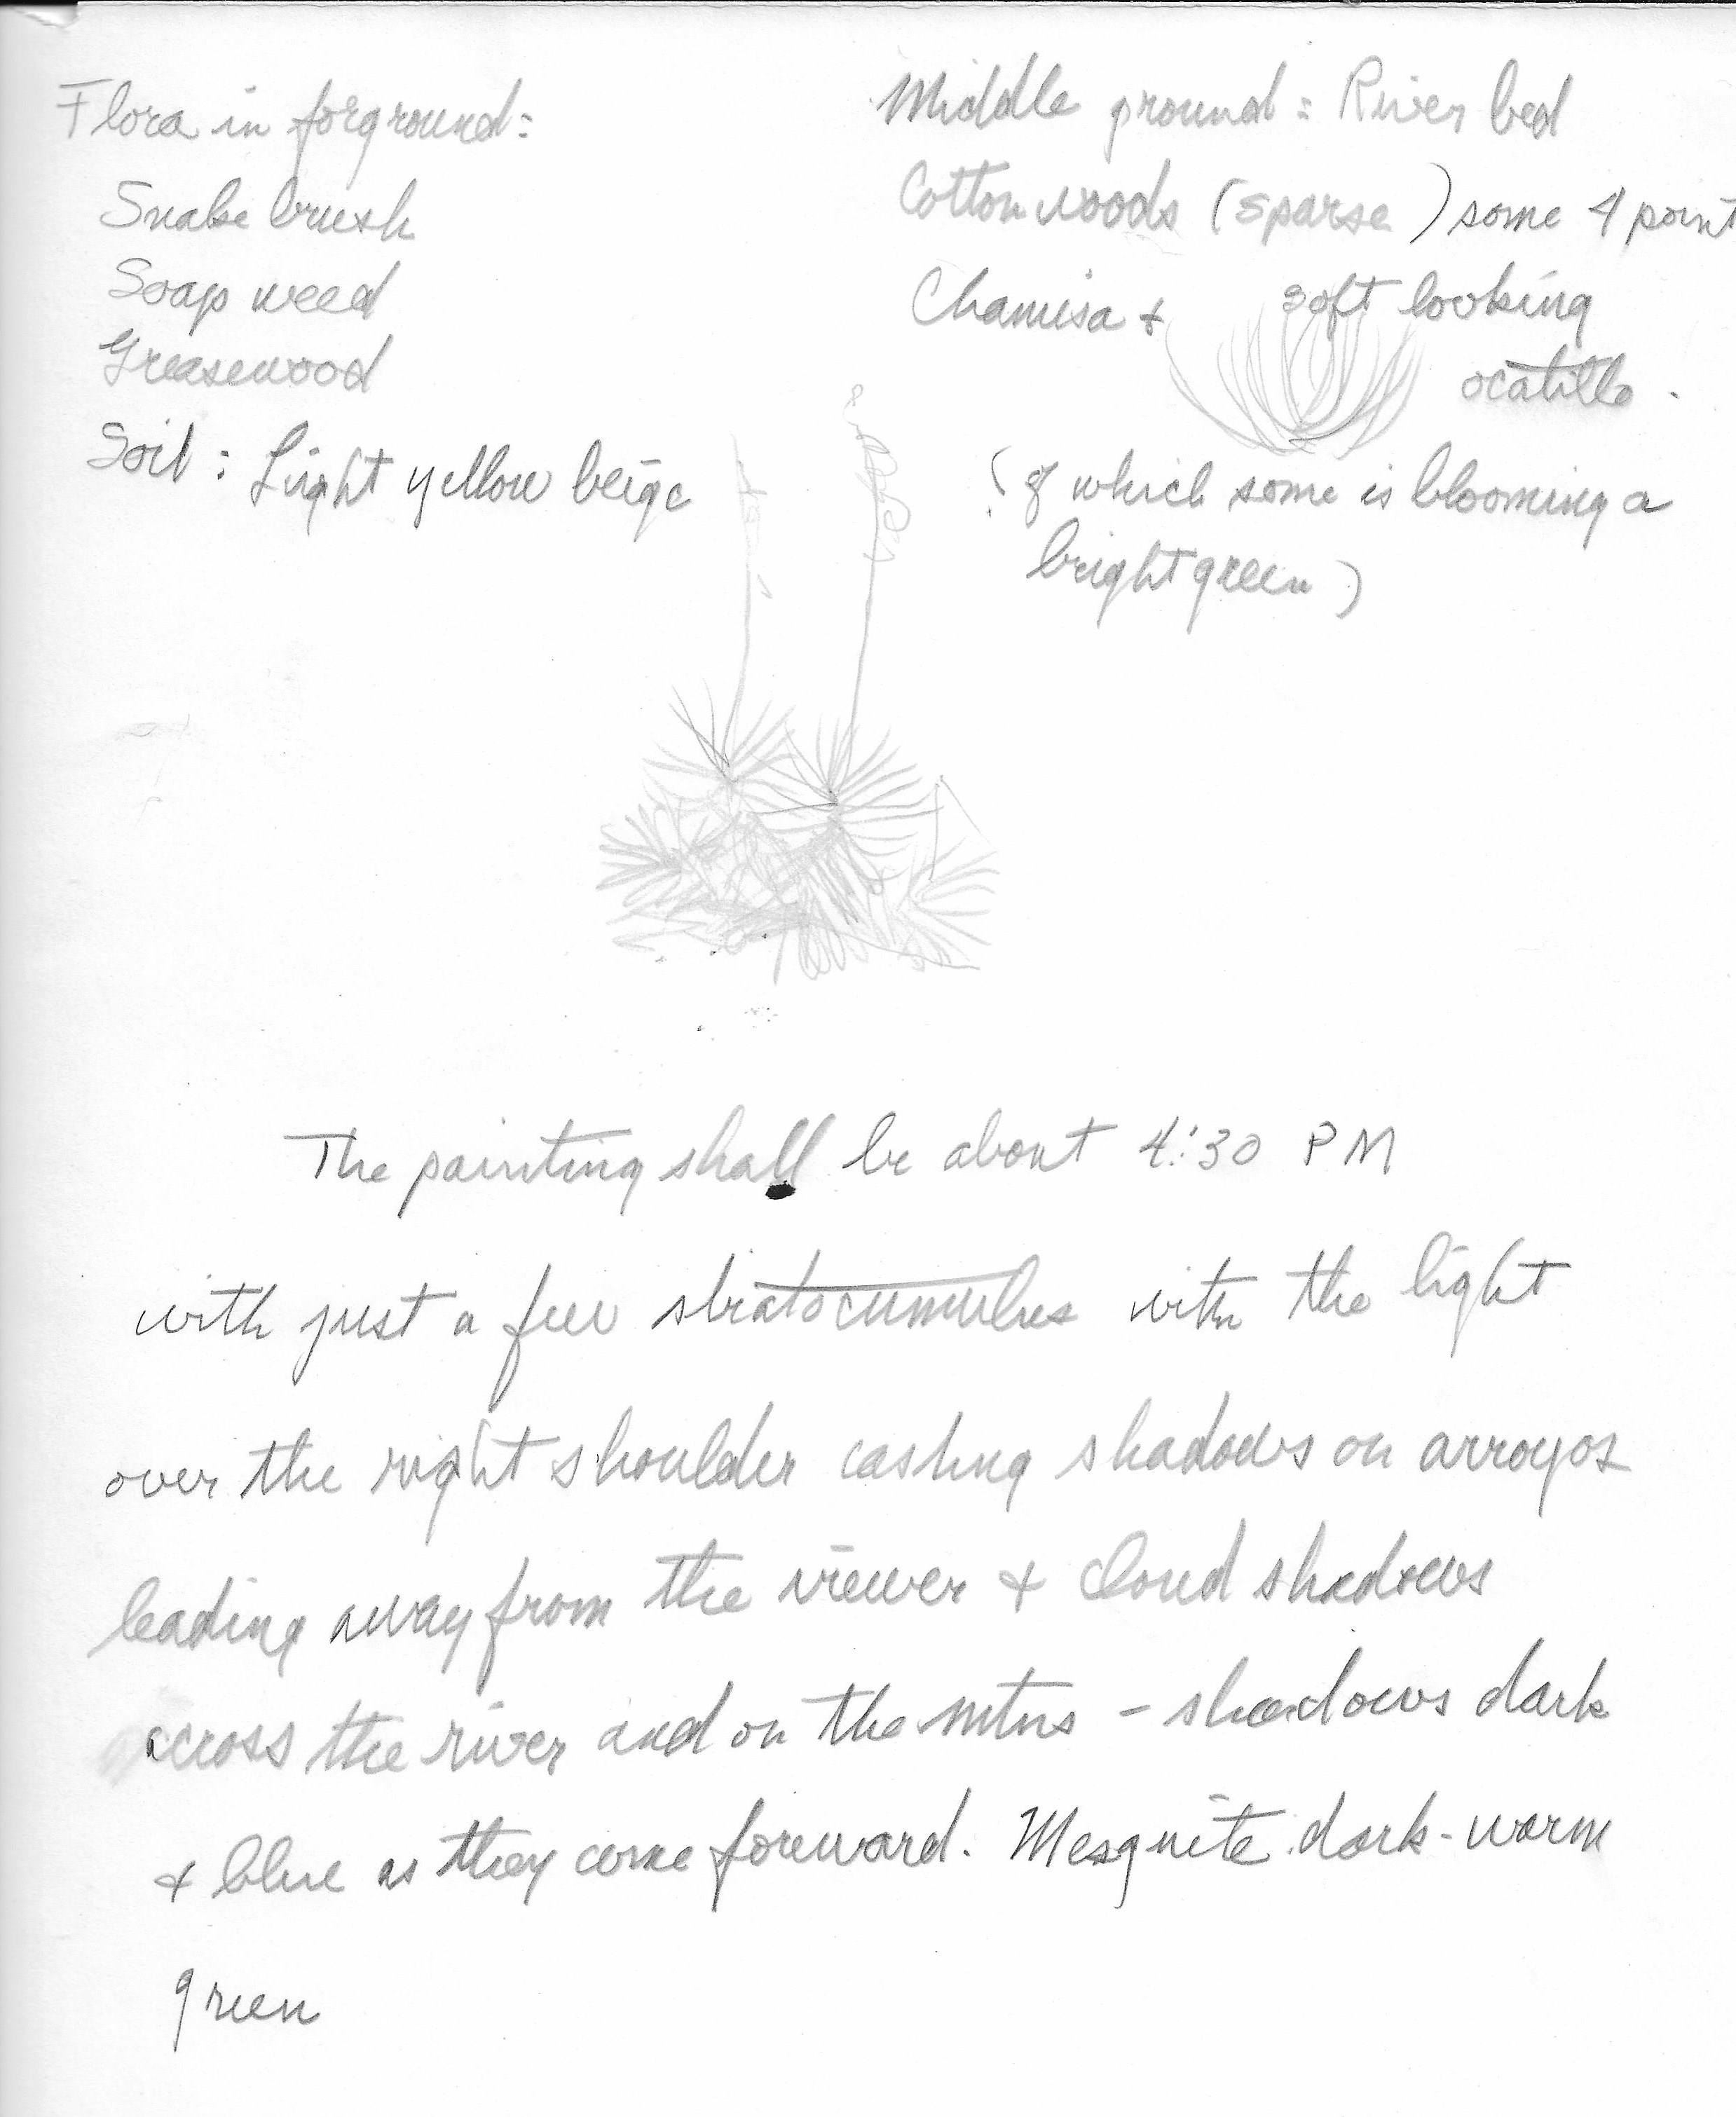 Flora in forground:
Snake brush
Soap weed
Greasewood
Soil: Light yellow beige
Middle ground: River bed
Cottonwoods (sparse) some 4 point
Chamisa + soft looking
ocatillo.
(of which some is blooming a
bright green)
The painting shall be about 4:30 PM
with just a few stratocumulus with the light
over the right shoulder casting shadows on arroyos
leading away from the viewer + cloud shadows
across the river and on the mtns - shadows dark
+ blue as they come foreward. Mesquite dark-warm
green